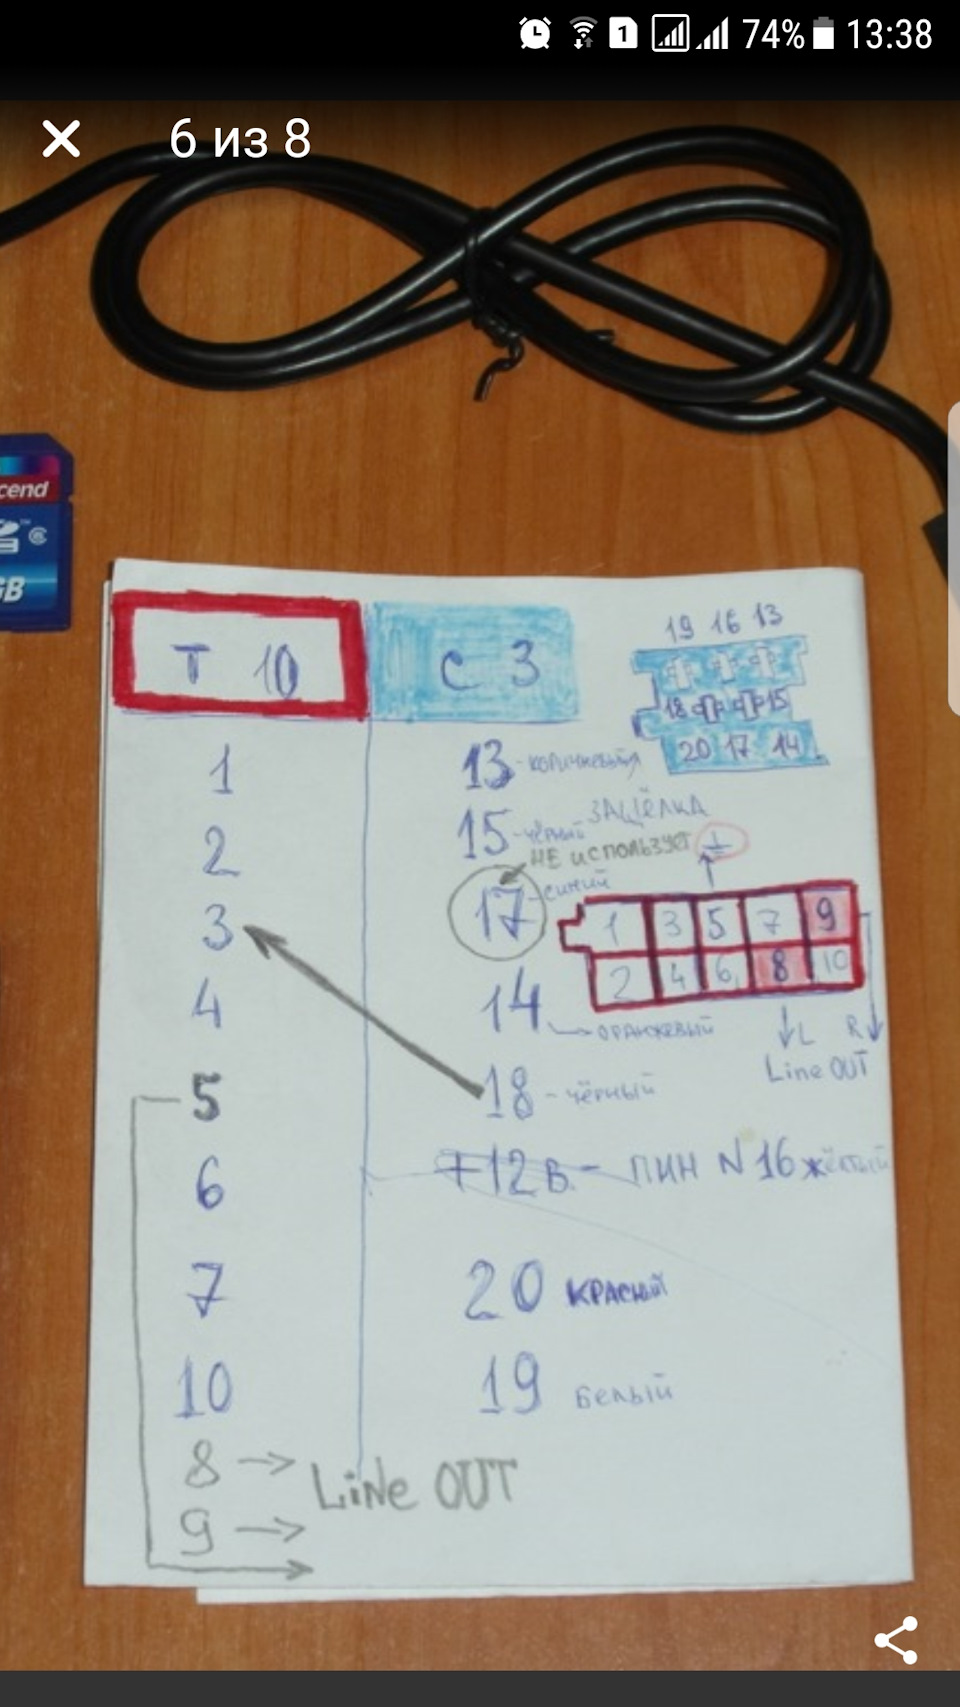 1 74% 13:38
6 из 8
cend
GB
Т 10 С 3
19 16 13
18 15
20 17 14
1 13 - коричневый
ЗАЩЁЛКА
2 15 - чёрный
НЕ ИСПОЛЬЗУЕТ
3 17 - синий
1 3 5 7 9
2 4 6 8 10
4 14 ОРАНЖЕВЫЙ
L R
Line OUT
5 18 - чёрный
6 +12 В. - ПИН N 16 жёлтый
7 20 КРАСНЫЙ
10 19 Белый
8 → Line OUT
9 →